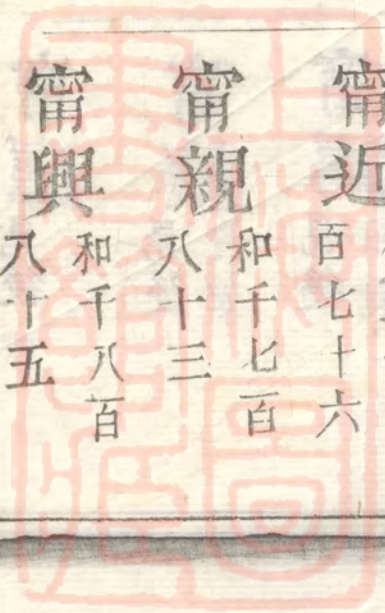 甯近
百七十六
甯親
和千七百
八十三
甯興
和千八百
八十五